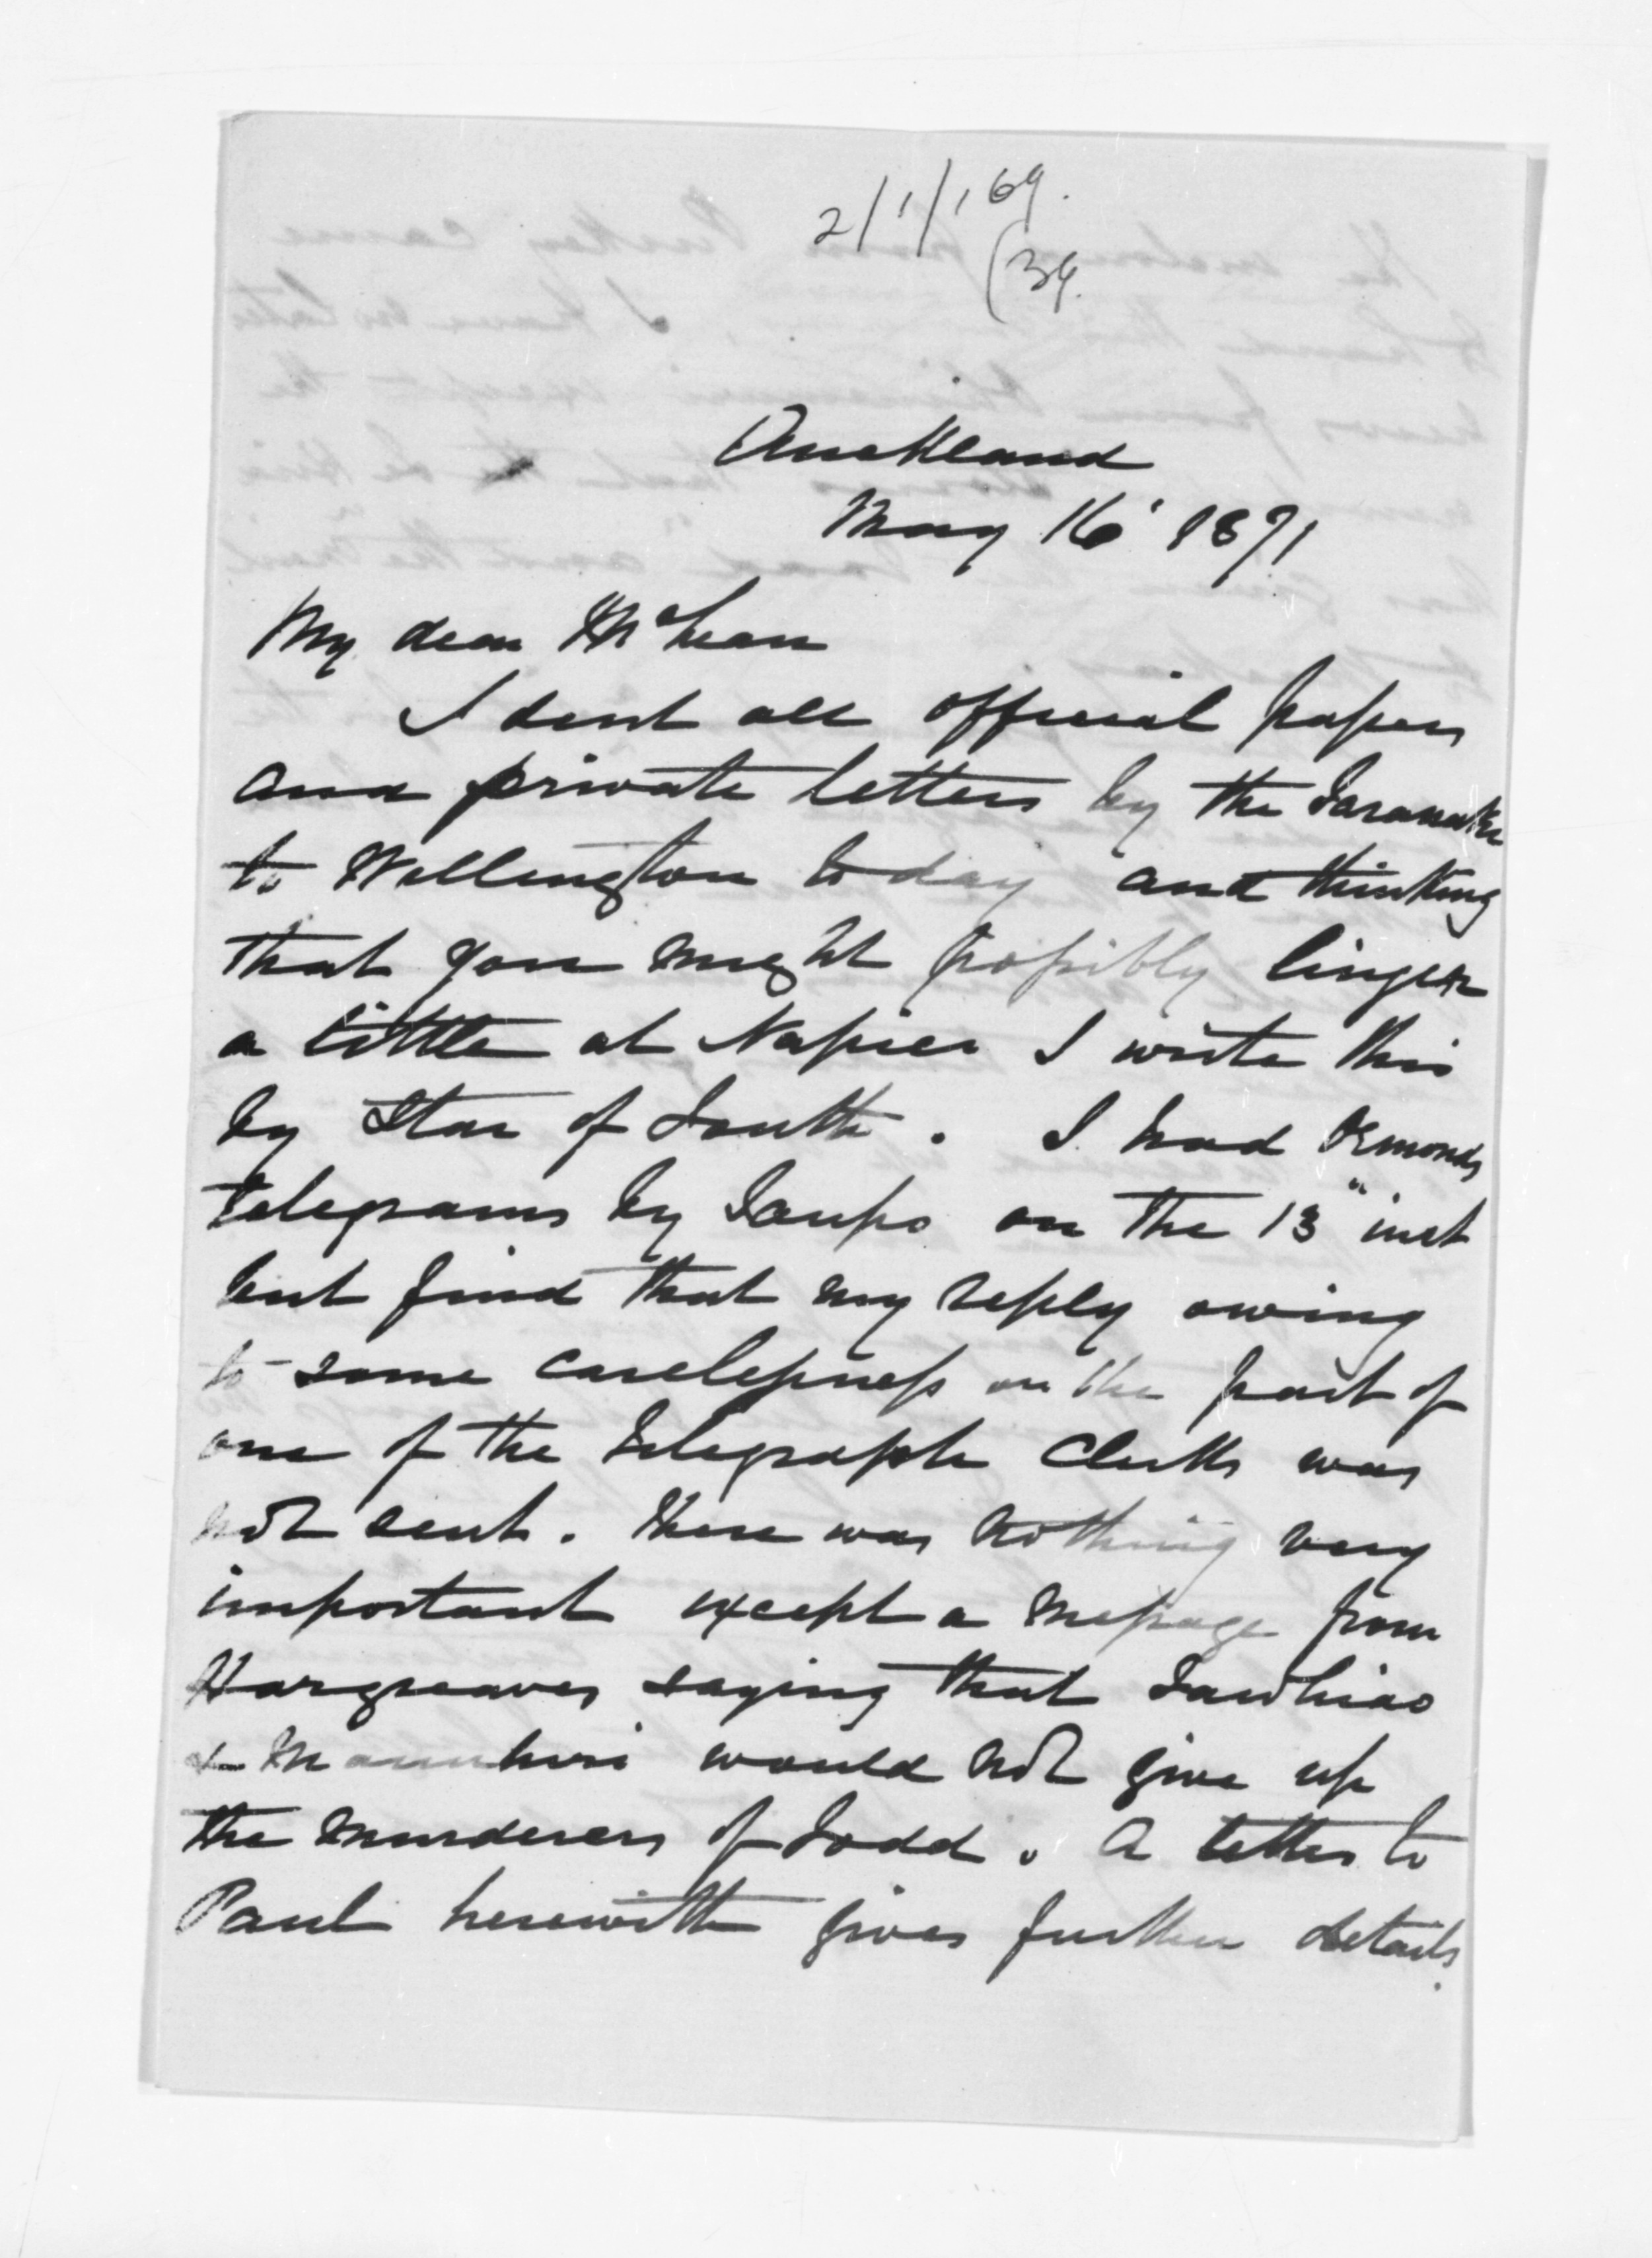 2/1/169.
(39.
Auckland
May 16' 1871
My dear McLean
I sent all official papers
and private letters by the Taranaki
to Wellington today and thinking
that you might possibly linger
a little at Napier I write this
by Star of South. I had Ormonds
telegrams by Taupo on the 13" inst
but find that my reply owing
to some carelessness on the part of
one of the telegraph clerks was
not sent. There was nothing very
important except a message from
Hargreaves saying that Tawhiao
& Manuhiri would not give up
the murderers of Todd. A letter to
Paul herewith gives further details.